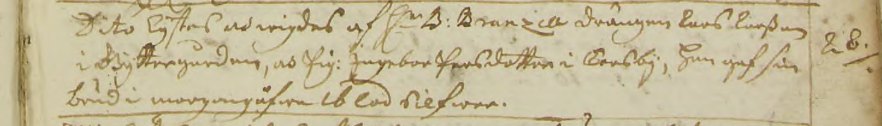 Dito lystes ao wigdes af Hr B: Branzell drängen Lars Larsson
i Ryttaregården, ao Pig: Ingebor Persdotter i Torsby, han gaf sin
brud i morgongåfwa 16 Lod Silfwer.